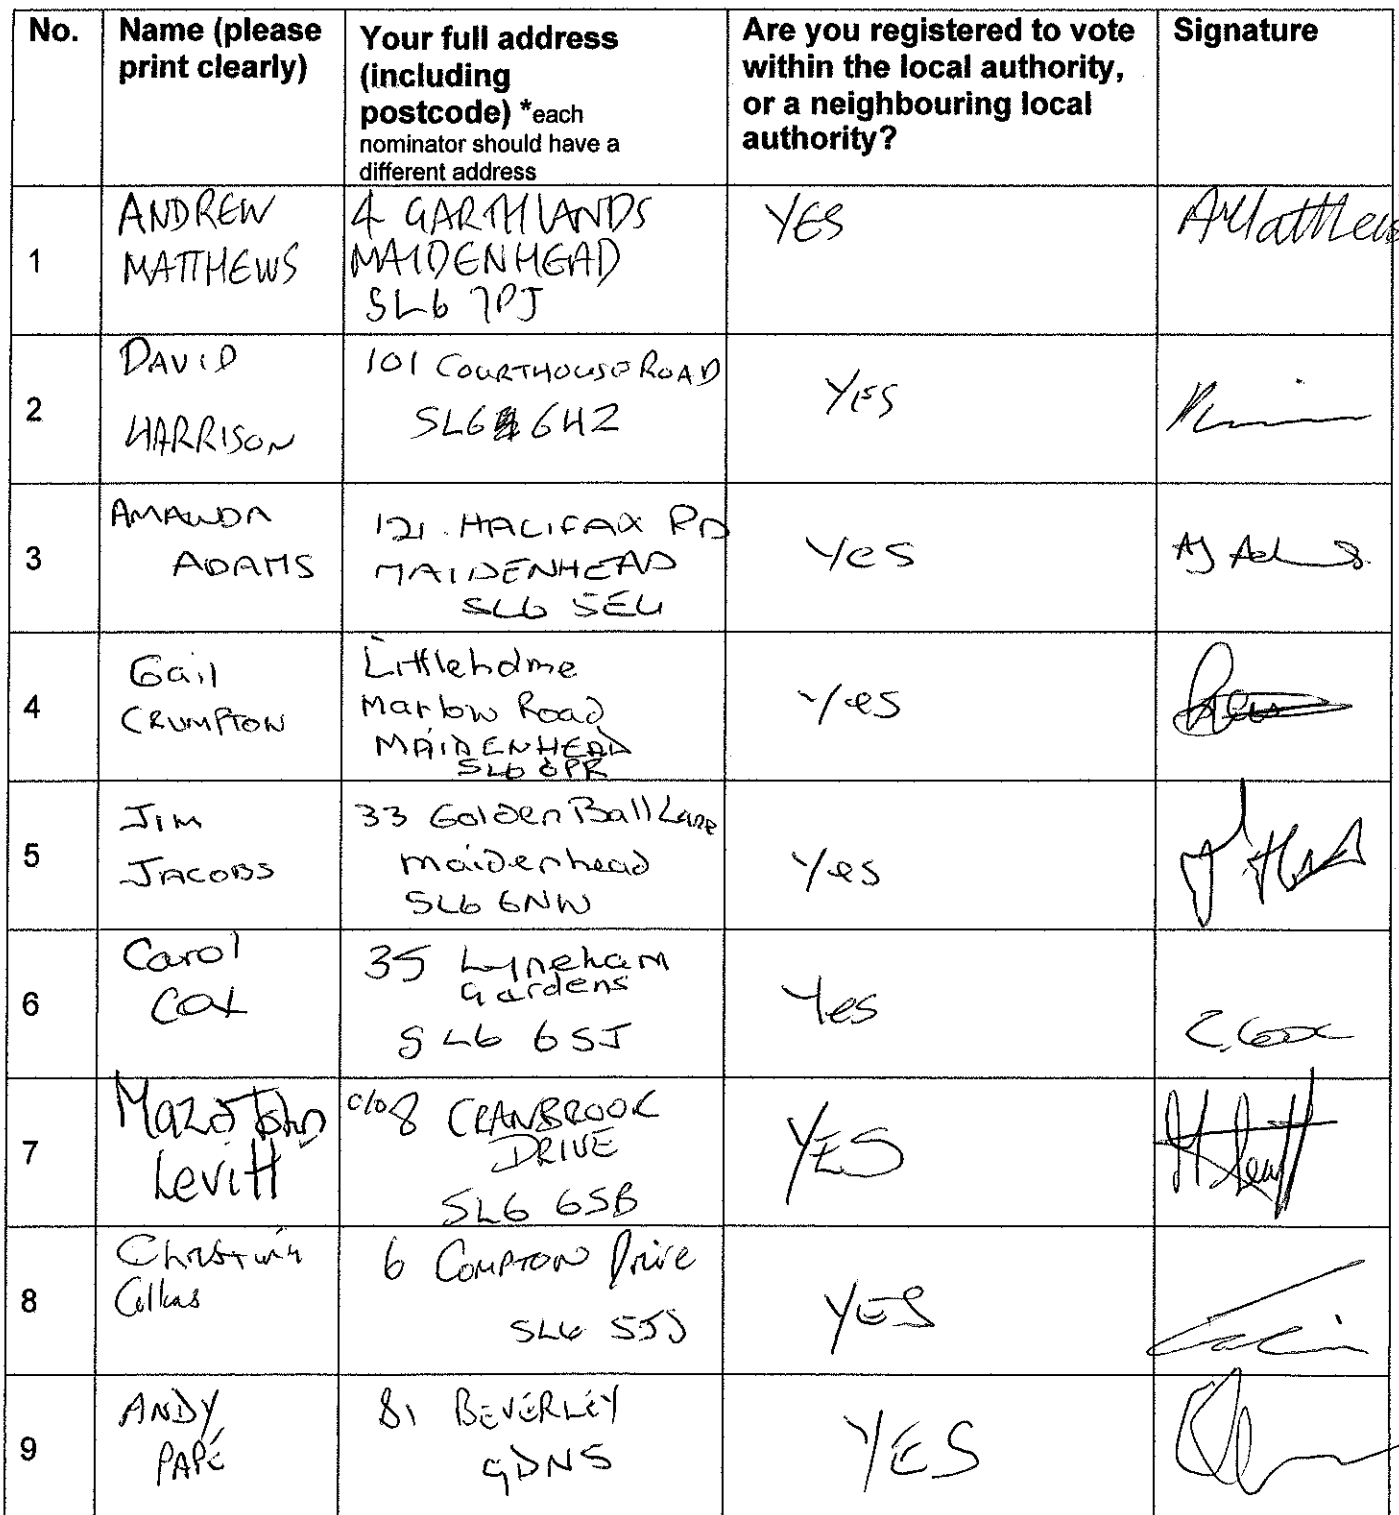 No.
Name (please
print clearly)
Your full address
(including
postcode) *each
nominator should have a
different address
Are you registered to vote
within the local authority,
or a neighbouring local
authority?
Signature
1
ANDREW
MATTHEWS
4 GARTHLANDS
MAIDENHEAD
SL6 7PJ
YES
AMatthews
2
DAVID
HARRISON
101 COURTHOUSE ROAD
SL6 6HZ
YES
3
AMANDA
ADAMS
121. HALIFAX RD
MAIDENHEAD
SL6 5EU
Yes
4
Gail
CRUMPTON
Littleholme
Marlow Road
MAIDENHEAD
SL6
Yes
5
JIM
JACOBS
33 Golden Ball Lane
maidenhead
SL6 6NW
Yes
6
Carol
Cox
35 Lyneham
Gardens
SL6 6SJ
Yes
C. Cox
7
John
Levitt
c/o 8 CRANBROOK
DRIVE
SL6 6SB
YES
8
6 COMPTON Drive
SL6 5JJ
YES
9
ANDY
PAPÉ
81 BEVERLEY
GDNS
YES